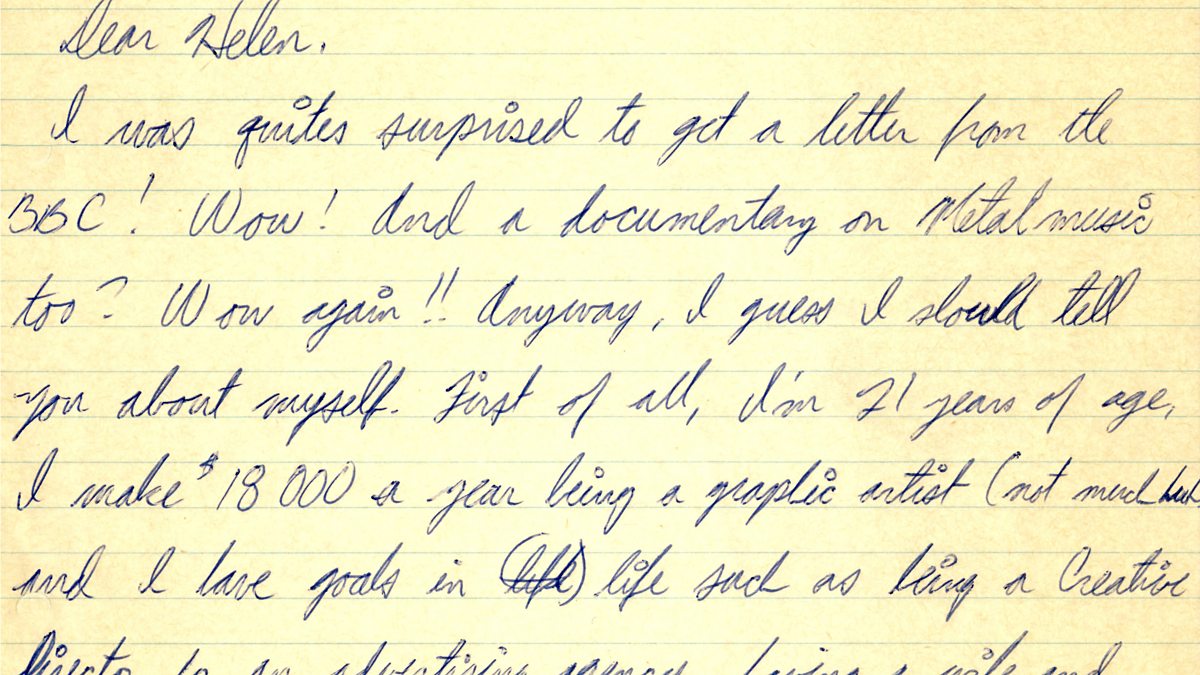 Dear Helen.
I was quites surprised to get a letter from the
BBC! Wow! And a documentary on Metal music
too? Wow again!! Anyway, I guess I should tell
you about myself. First of all, I'm 21 years of age,
I make $18 000 a year being a graphic artist (not much but
and I have goals in (life) life such as being a Creative
Director to an advertising agency, having a wife and